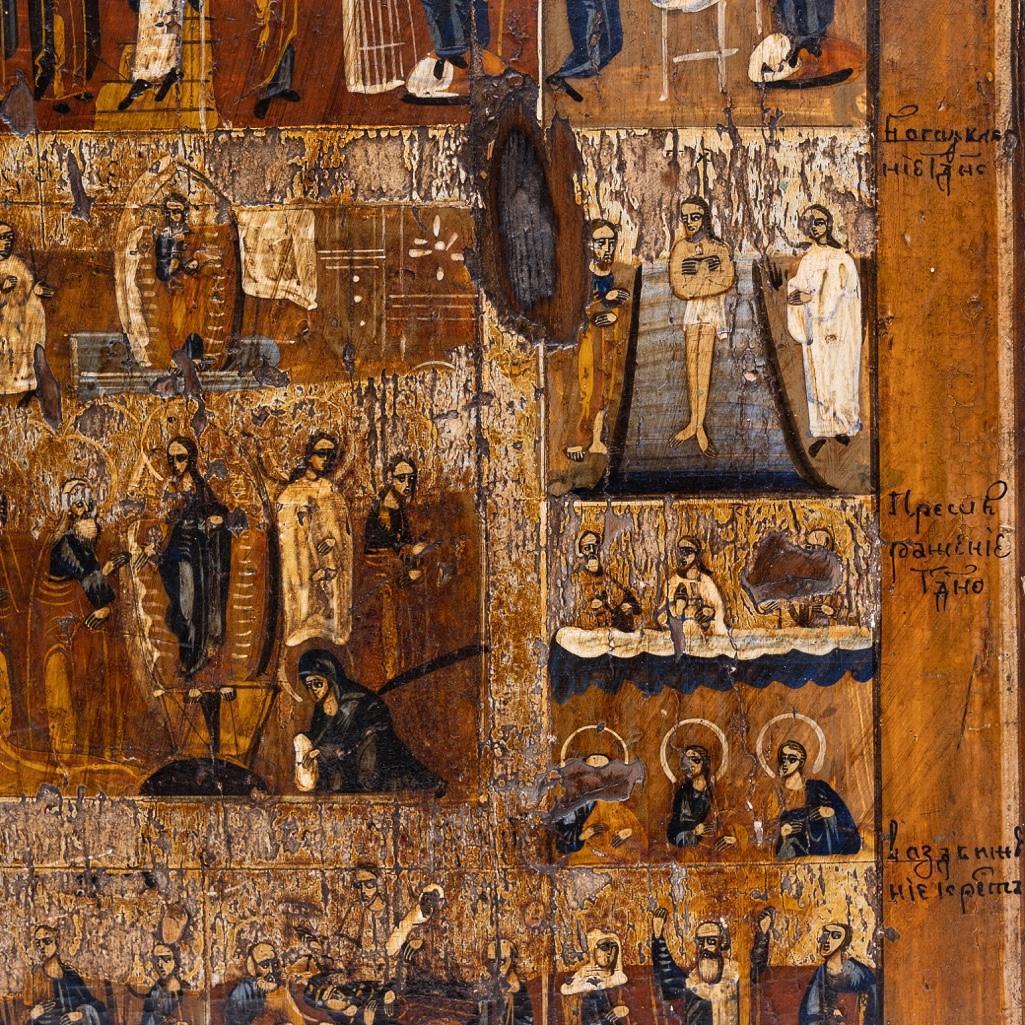 Богоявле
ніе Гдне
Преоб
раженіе
Гдно
Воздвиже
ніе Креста